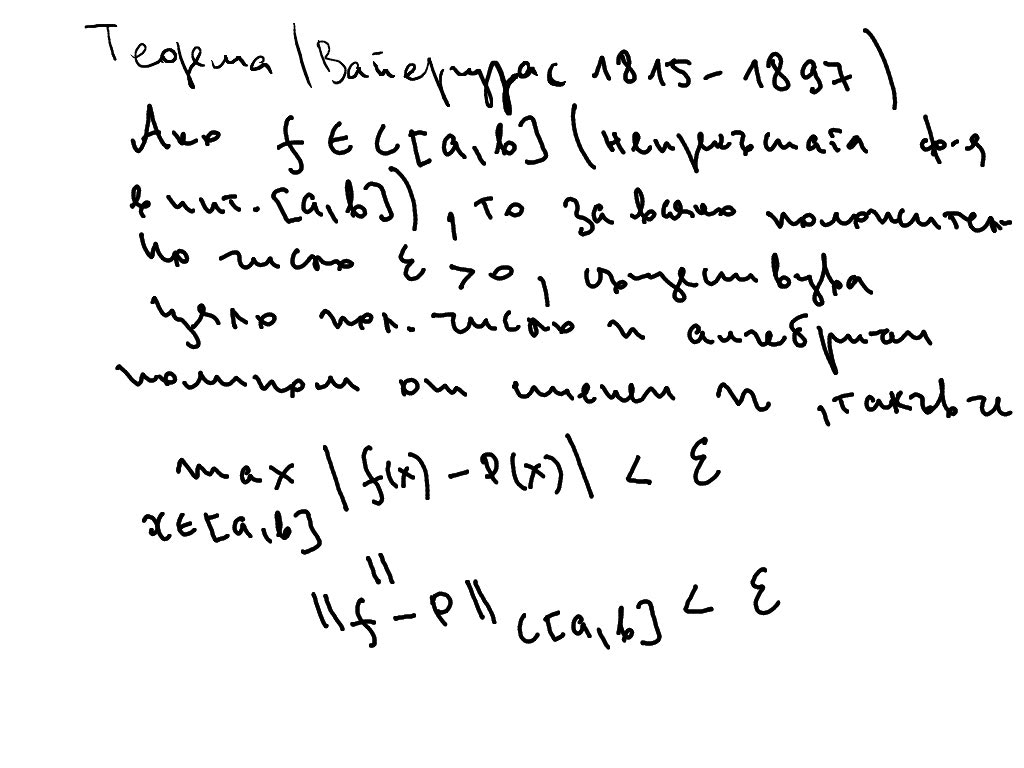 Теорема (Вайерщрас 1815-1897)
Ако f ∈ C[a,b] (непрекъсната ф-я
в инт. [a,b]), то за всяко положител-
но число ε > 0, съществува
цяло пол. число n алгебричен
полином от степен n, такъв че
max |f(x) - P(x)| < ε
x∈[a,b]
||
||f - P|| C[a,b] < ε